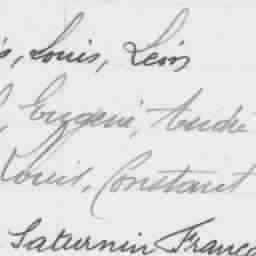 s, Louis, Léon
, Eugène, André
Louis, Constant
Saturnin França